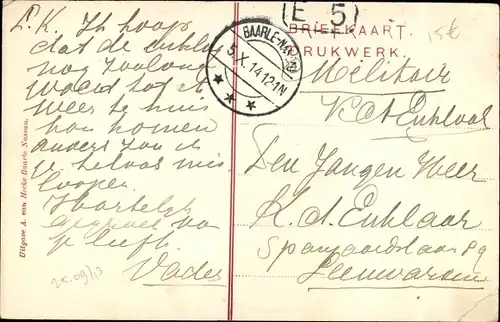 L. K. Ik hoop
dat de
nog zoolang
woord tot ik
weer te huis
kon komen
anders zou ik
je helaas mis
loopen
Hartelijk
gegroet van
je liefh.
Vader
25.09/13
Uitgave A. van Hecke Baarle-Nassau.
E 5
BAARLE-NASSAU
5.X.14 12-1N
BRIEFKAART.
DRUKWERK.
15€
Militair
V.
Den Jongen Heer
K. d. Enklaar
Spanjaardslaan 89
Leeuwarden